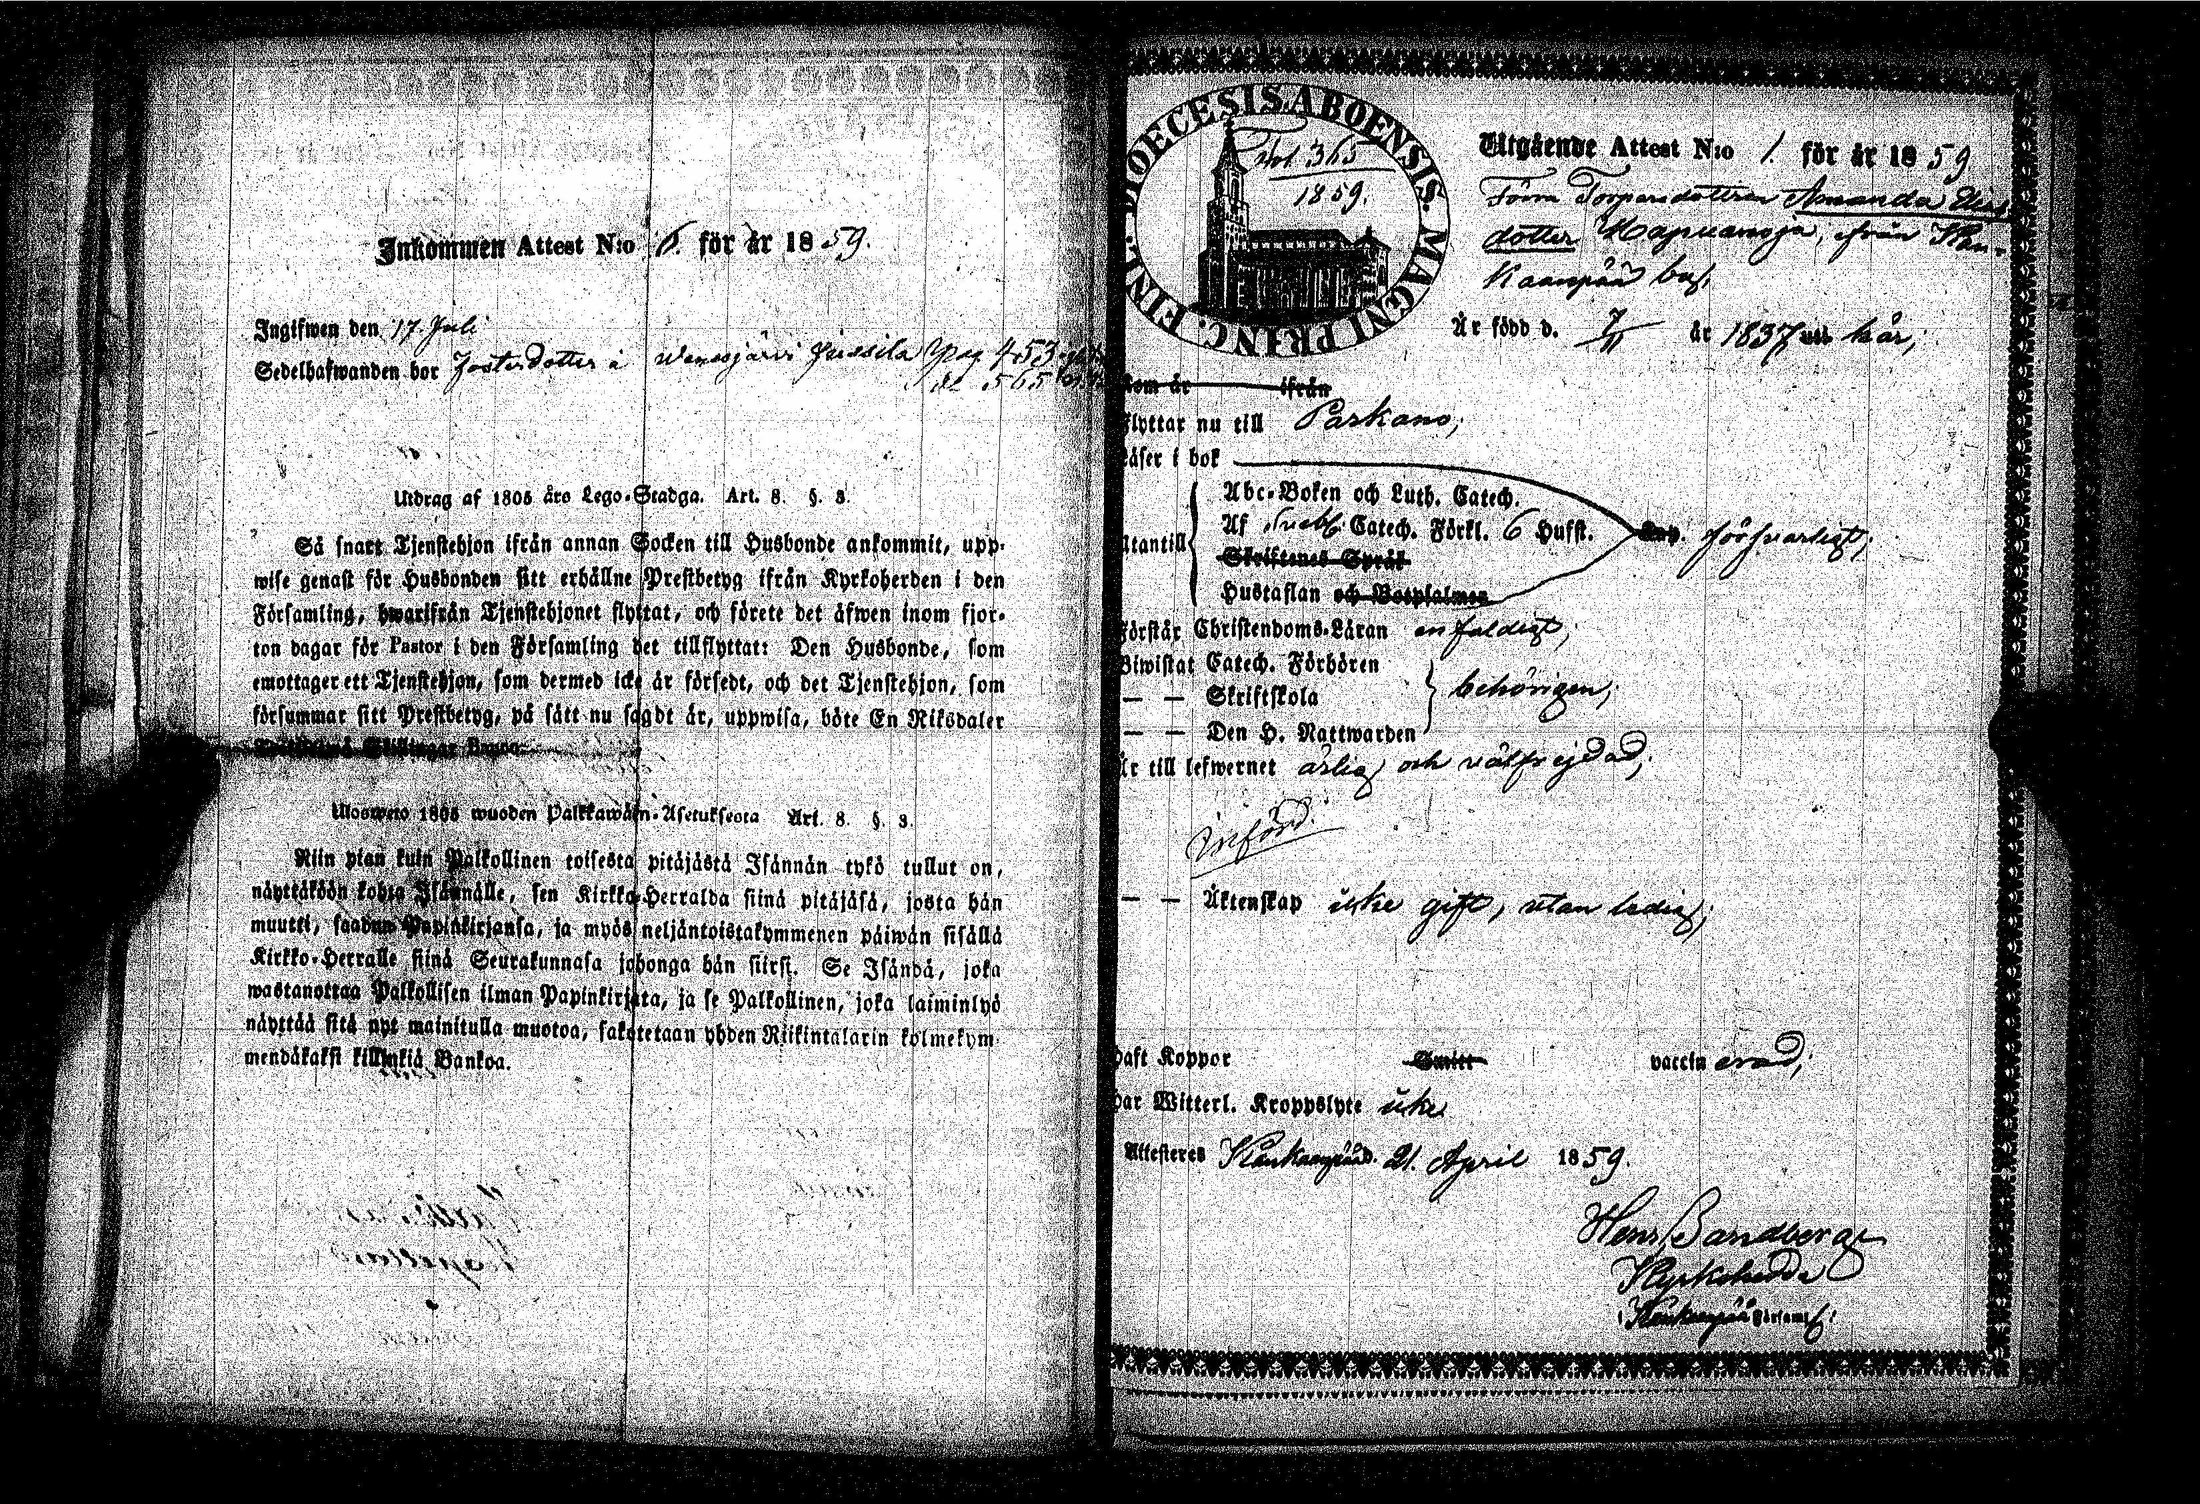 Inkommen Attest N:o 6. för år 1859.
Ingifwen den 17. Juli
Sedelhafwanden bor Fosterdotter i Wenesjärvi Jussila Pag 453
565
Utdrag af 1805 års Lego-Stadga. Art. 8. §. 3.
Så snart Tjenstehjon ifrån annan Socken till Husbonde ankommit, upp-
wise genast för Husbonden sitt erhållne Prestbetyg ifrån Kyrkoherden i den
Församling, hwarifrån Tjenstehjonet flyttat, och förete det äfwen inom fjor-
ton dagar för Pastor i den Församling det tillflyttat: Den Husbonde, som
emottager ett Tjenstehjon, som dermed icke är försedt, och det Tjenstehjon, som
försummar sitt Prestbetyg, på sätt nu sagdt är, uppwisa, böte En Riksdaler
Skillingar Banco.
Ulosweto 1805 wuoden Palkkawäen-Asetuksesta Art. 8. §. 3.
Niin pian kuin Palkollinen toisesta pitäjästä Isännän tykö tullut on,
näyttäköön kohta Isännälle, sen Kirkko-Herralda siinä pitäjäsä, josta hän
muutti, saadun Papinkirjansa, ja myös neljäntoistakymmenen päiwän sisällä
Kirkko-Herralle siinä Seurakunnasa johonga hän siirsi. Se Isändä, joka
wastanottaa Palkollisen ilman Papinkirjata, ja se Palkollinen, joka laiminlyö
näyttää sitä nyt mainitulla muotoa, sakotetaan yhden Riikintalarin kolmekym-
mendäkaksi killinkiä Bankoa.
DIOECESIS ABOENSIS. MAGNI PRINC. FINL.
Fol 365
1859.
Utgående Attest N:o 1. för år 1859
Förra Torparedottren Amanda
dotter Hapuanoja, från Kan-
kaanpää by,
Är född d. 7/11 år 1837 här,
Kom år ifrån
flyttar nu till Parkano,
Läser i bok
Abc-Boken och Luth. Catech.
Utantill Af Svebi. Catech. Förkl. 6 Hufst. försvarligt,
Skriftenes Språk
Hustaflan och Botpsalmer
Förstår Christendoms-Läran enfaldigt,
Biwistat Catech. Förhören
— — Skriftskola behörigen,
— — Den H. Nattwarden
Är till lefwernet ärlig och välfrejdad,
införd.
— — Äktenskap icke gift, utan ledig,
Haft Koppor vaccin erad,
Har Witterl. Kroppslyte icke
Attesteres Kankaanpää d. 21. April 1859.
Henr. Sandberg
Kyrkoherde
i Kankaanpää Förssaml.